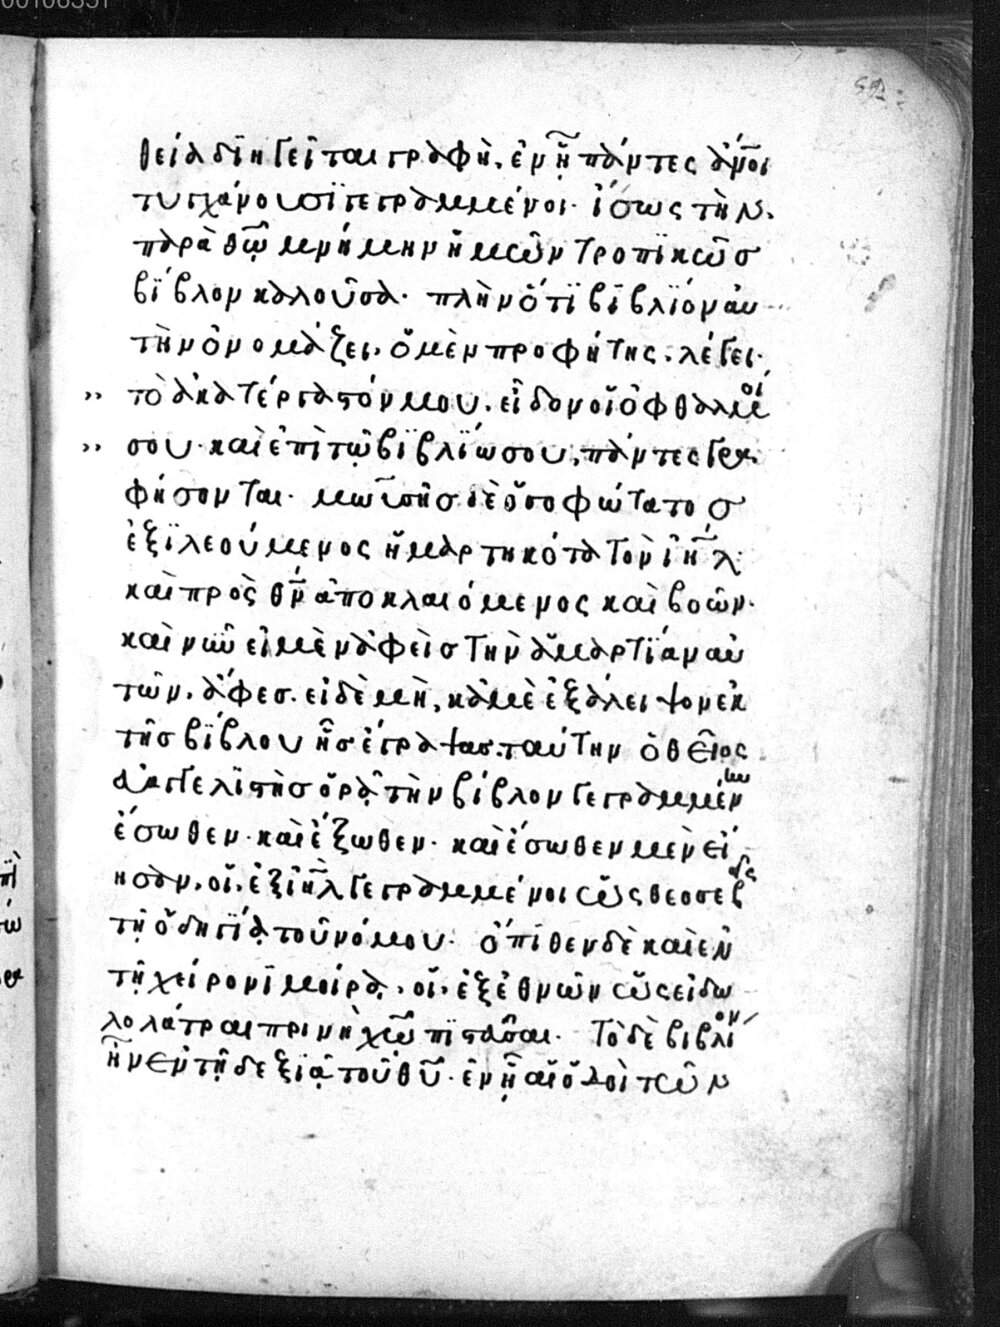 00106351
592
θεία διηγεῖται γραφὴ, ἐν ᾗ πάντες ἄνοι
τυγχάνουσϊ γεγραμμένοι· ἴσως τὴν
παρὰ θω μνήμην ἡμῶν τροπϊκῶσ
βϊβλον καλοῦσα· πλὴν ὅτϊ βιβλϊον αυ
τὴν ὀνομάζει, ὁ μὲν προφήτης, λέγει·
,, τὸ ἀκατέργαστόν μου, εἶδον οἱ ὀφθαλμοί
,, σου· καὶ ἐπὶ τῶ βϊβλϊω σου, πάντες γρα
φήσονται· μωϋσῆσ δὲ ὁ σοφώτατοσ
ἐξϊλεούμενος ἡμαρτηκότα τὸν ιηλ·
καὶ πρὸς θν ἀποκλαιόμενος καὶ βοῶν·
καὶ νῦν εἰ μὲν ἀφεὶσ τὴν ἁμαρτϊαν αὐ
τῶν, ἄφεσ· εἰ δὲ μὴ, κἀμὲ ἐξάλειψον ἐκ
τῆσ βϊβλου ἧσ ἔγραψασ· ταύτην ὁ θεῖος
εὐαγγελϊστὴσ ὁρᾶ τὴν βίβλον γεγραμμένην
ἔσωθεν· καὶ ἔξωθεν· καὶ ἔσωθεν μὲν εἰ
ησαν, οἱ, ἐξ ιηλ γεγραμμένοι ὡς θεοσεβεῖς
τῇ ὁδηγϊα τοῦ νόμου· ὄπιθεν δὲ καὶ ἐν
τῇ χείρονι μοίρα, οἱ, ἐξ ἐθνῶν ὡς εἰδω
λολάτραι πρινὴ χω πϊστεῦσαι· Τὸ δὲ βιβλίον
ἦν ἐν τῇ δεξϊᾶ τοῦ θυ· ἐν ᾗ αἱ ὁδοὶ τῶν